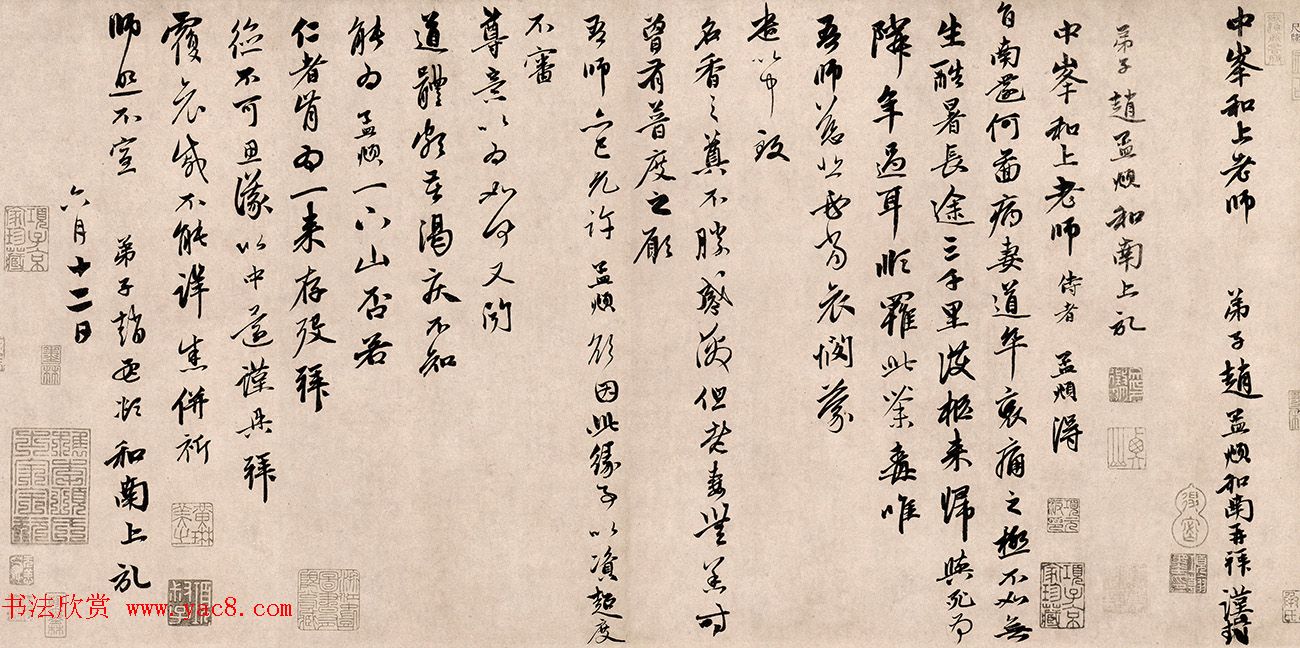 中峯和上老师　弟子趙孟頫和南再拜謹封
弟子趙孟頫和南上記
中峯和上老师侍者　孟頫得
旨南還何圖病妻道卒哀痛之極不如無
生酷暑長途三千里護柩來歸與死為
隣年過耳順罹此荼毒唯
吾师慈悲必當哀憫蒙
遣以中致
名香之奠不勝感激但老妻無恙時
曾有普度之願
吾师亦已允許孟頫欲因此緣子以資超度
不審
尊意以為如何又聞
道體頗苦渴疾不知
能為孟頫一下山否若
仁者肯為一來存歿拜
德不可思議以中還謹再拜
覆哀感不能詳悉併祈
师照不宣　弟子趙孟頫和南上記
六月十二日
項子京家珍藏
項子京家珍藏
墨林
书法欣赏 www.yac8.com